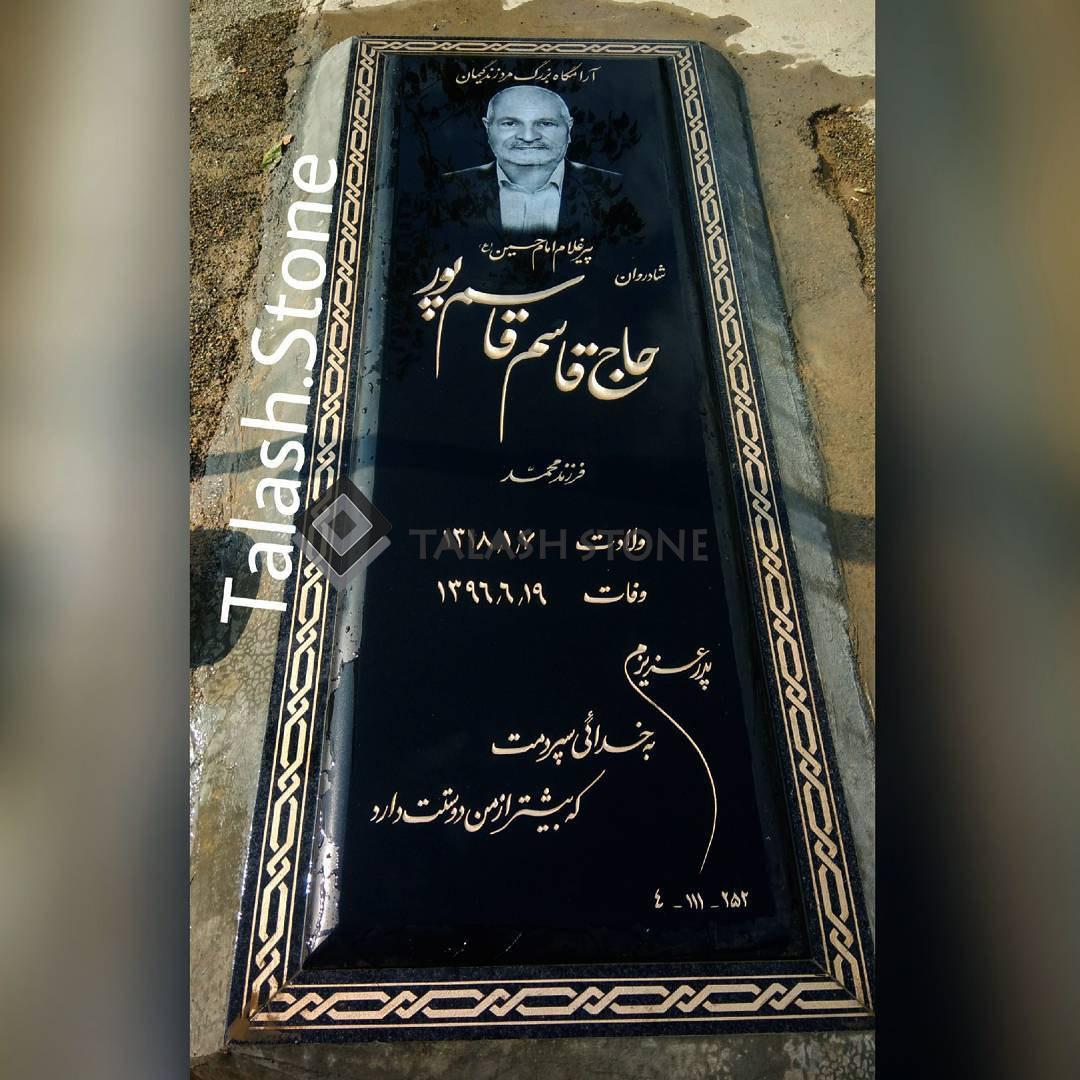 آرامگاه بزرگ مرد زندگیمان
پیر غلام امام حسین (ع)
شادروان
حاج قاسم قاسم پور
فرزند محمد
ولادت ۱۳۱۸،۱،۷
وفات ۱۳۹۶،۶،۱۹
پدر عزیزم
به خدائی سپردمت
که بیشتر از من دوستت دارد
۲۵۲ - ۱۱۱ - ٤
Talash.Stone
TALASH STONE